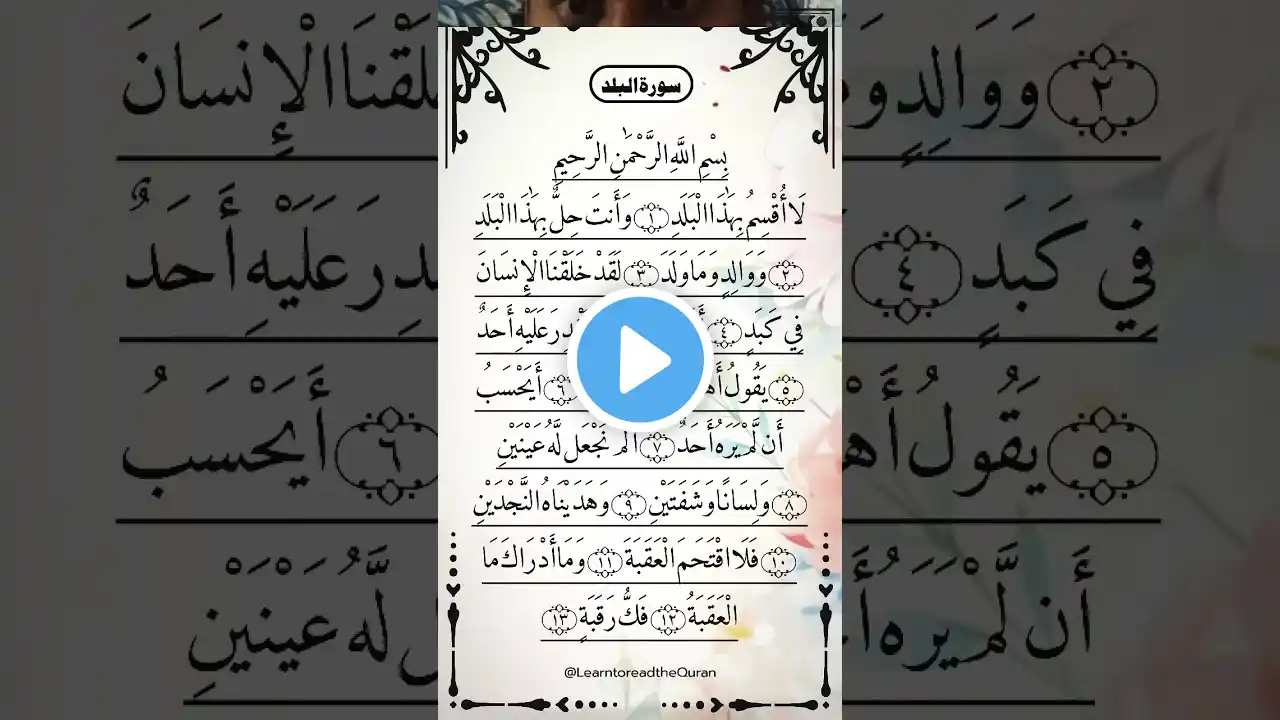 سورة البلد
بِسْمِ اللَّهِ الرَّحْمَٰنِ الرَّحِيمِ
لَا أُقْسِمُ بِهَٰذَا الْبَلَدِ ١ وَأَنتَ حِلٌّ بِهَٰذَا الْبَلَدِ
٢ وَوَالِدٍ وَمَا وَلَدَ ٣ لَقَدْ خَلَقْنَا الْإِنسَانَ
فِي كَبَدٍ ٤ عَلَيْهِ أَحَدٌ
٥ يَقُولُ ٦ أَيَحْسَبُ
أَن لَّمْ يَرَهُ أَحَدٌ ٧ أَلَمْ نَجْعَل لَّهُ عَيْنَيْنِ
٨ وَلِسَانًا وَشَفَتَيْنِ ٩ وَهَدَيْنَاهُ النَّجْدَيْنِ
١٠ فَلَا اقْتَحَمَ الْعَقَبَةَ ١١ وَمَا أَدْرَاكَ مَا
الْعَقَبَةُ ١٢ فَكُّ رَقَبَةٍ ١٣
@LearntoreadtheQuran